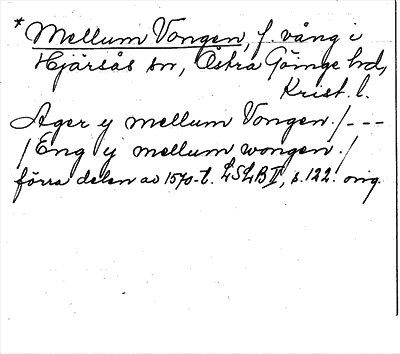 * Mellum Vongen, f. vång i
Hjärsås sn, Östra Göinge hd,
Krist. l.
Ager y mellum Vongen. / - - -
/ Eng y mellum wongen. /
förra delen av 1570-t. LSLB II, s. 122. orig.